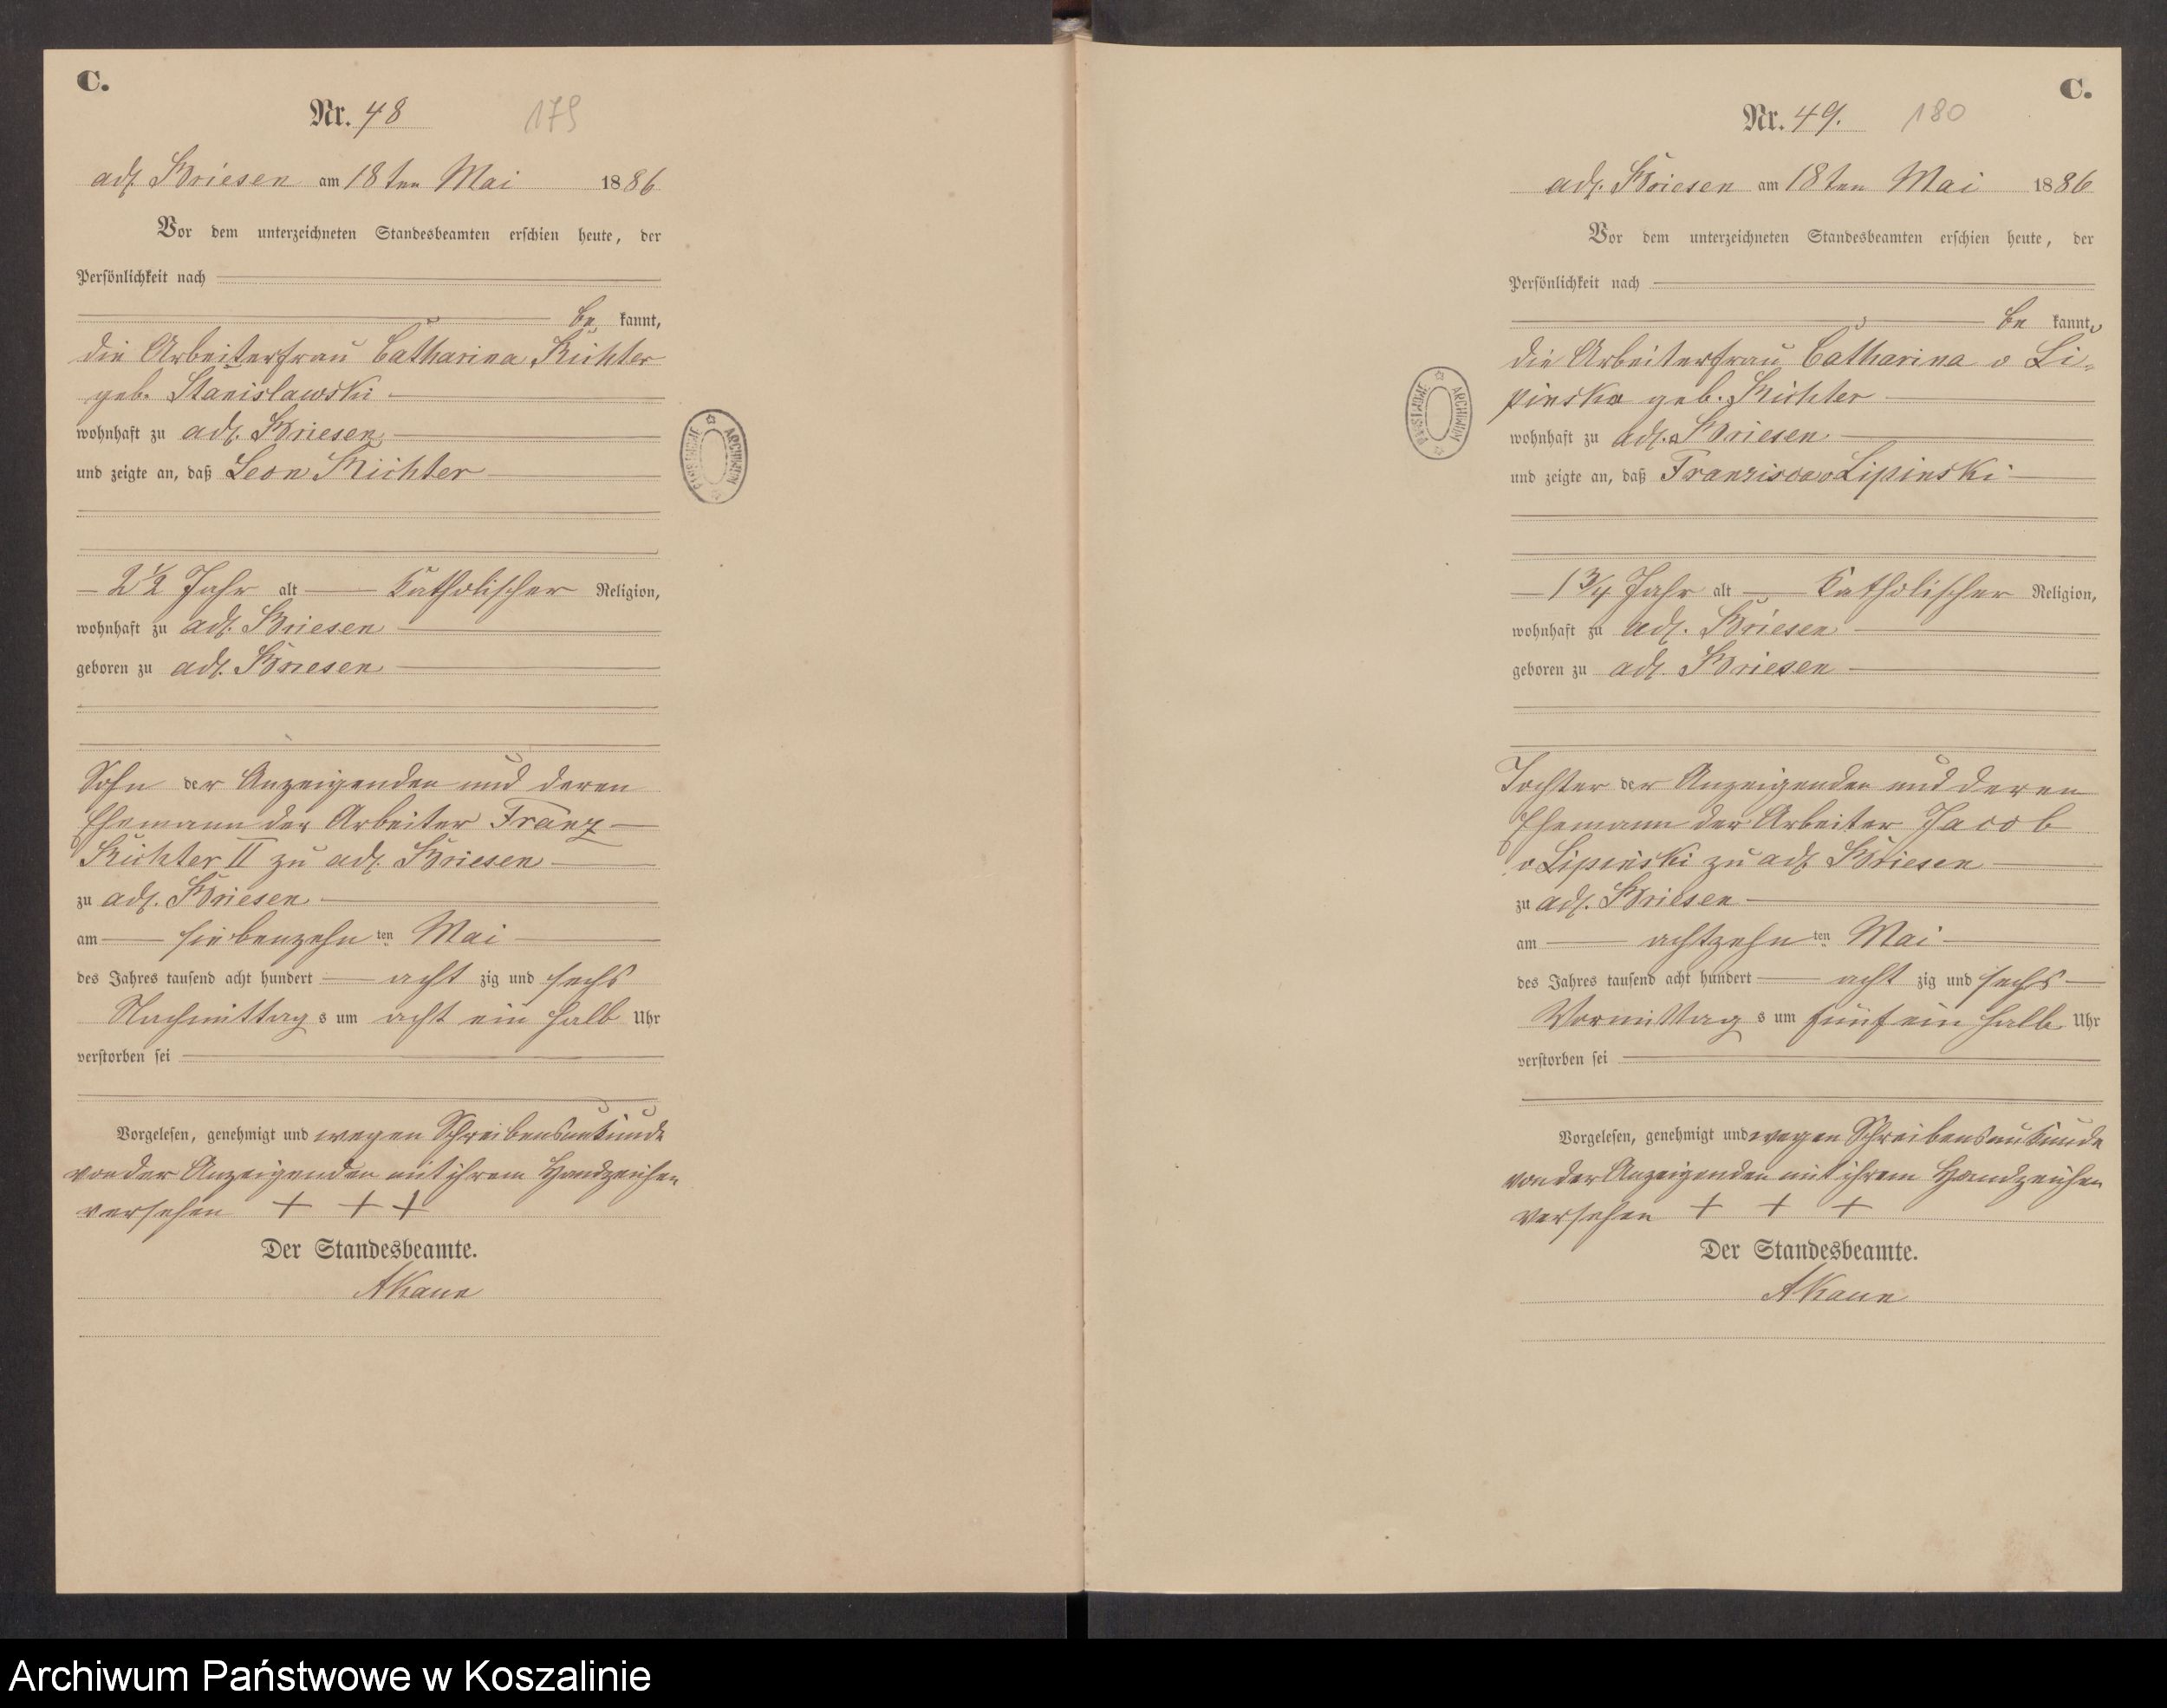 C.
Nr. 48
179
adl. Briesen am 18ten Mai 1886
Vor dem unterzeichneten Standesbeamten erschien heute, der
Persönlichkeit nach
be kannt,
die Arbeiterfrau Catharina Richter
geb. Stanislawski
wohnhaft zu adl. Briesen
und zeigte an, daß Leon Richter
2 1/2 Jahr alt Katholischer Religion,
wohnhaft zu adl. Briesen
geboren zu adl. Briesen
Sohn der Anzeigenden und deren
Ehemann der Arbeiter Franz
Richter II zu adl. Briesen
zu adl. Briesen
am siebenzehn ten Mai
des Jahres tausend acht hundert acht zig und sechs
Nachmittag s um acht ein halb Uhr
verstorben sei
Vorgelesen, genehmigt und wegen Schreibensunkunde
von der Anzeigenden mit ihrem Handzeichen
versehen + + +
Der Standesbeamte.
AKaun
ARCHIWUM PAŃSTWOWE
C.
Nr. 49.
180
adl. Briesen am 18ten Mai 1886
Vor dem unterzeichneten Standesbeamten erschien heute, der
Persönlichkeit nach
be kannt,
die Arbeiterfrau Catharina v Li-
pinska geb. Richter
wohnhaft zu adl. Briesen
und zeigte an, daß Franzisca v Lipinski
1 3/4 Jahr alt Katholischer Religion,
wohnhaft zu adl. Briesen
geboren zu adl. Briesen
Tochter der Anzeigenden und deren
Ehemann der Arbeiter Jacob
v Lipinski zu adl Briesen
zu adl. Briesen
am achtzehn ten Mai
des Jahres tausend acht hundert acht zig und sechs
Vormittag s um fünf ein halb Uhr
verstorben sei
Vorgelesen, genehmigt und wegen Schreibensunkunde
von der Anzeigenden mit ihrem Handzeichen
versehen + + +
Der Standesbeamte.
AKaun
ARCHIWUM PAŃSTWOWE
Archiwum Państwowe w Koszalinie